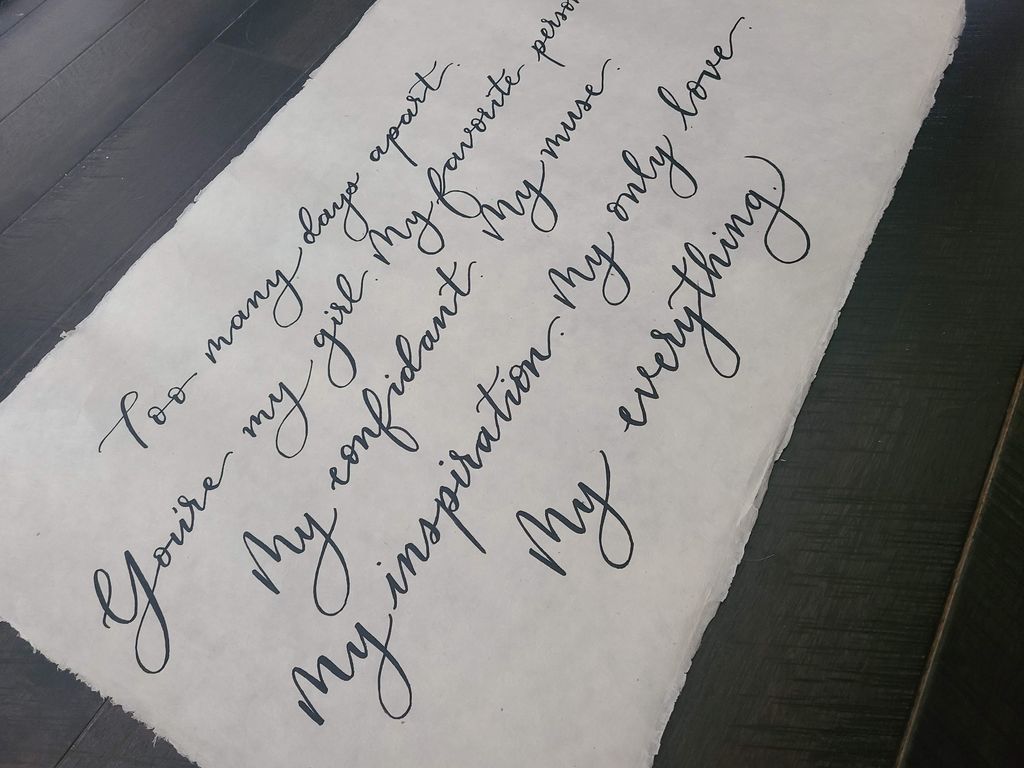 Too many days apart.
You're my girl. My favorite person
My confidant. My muse.
My inspiration. My only love.
My everything.